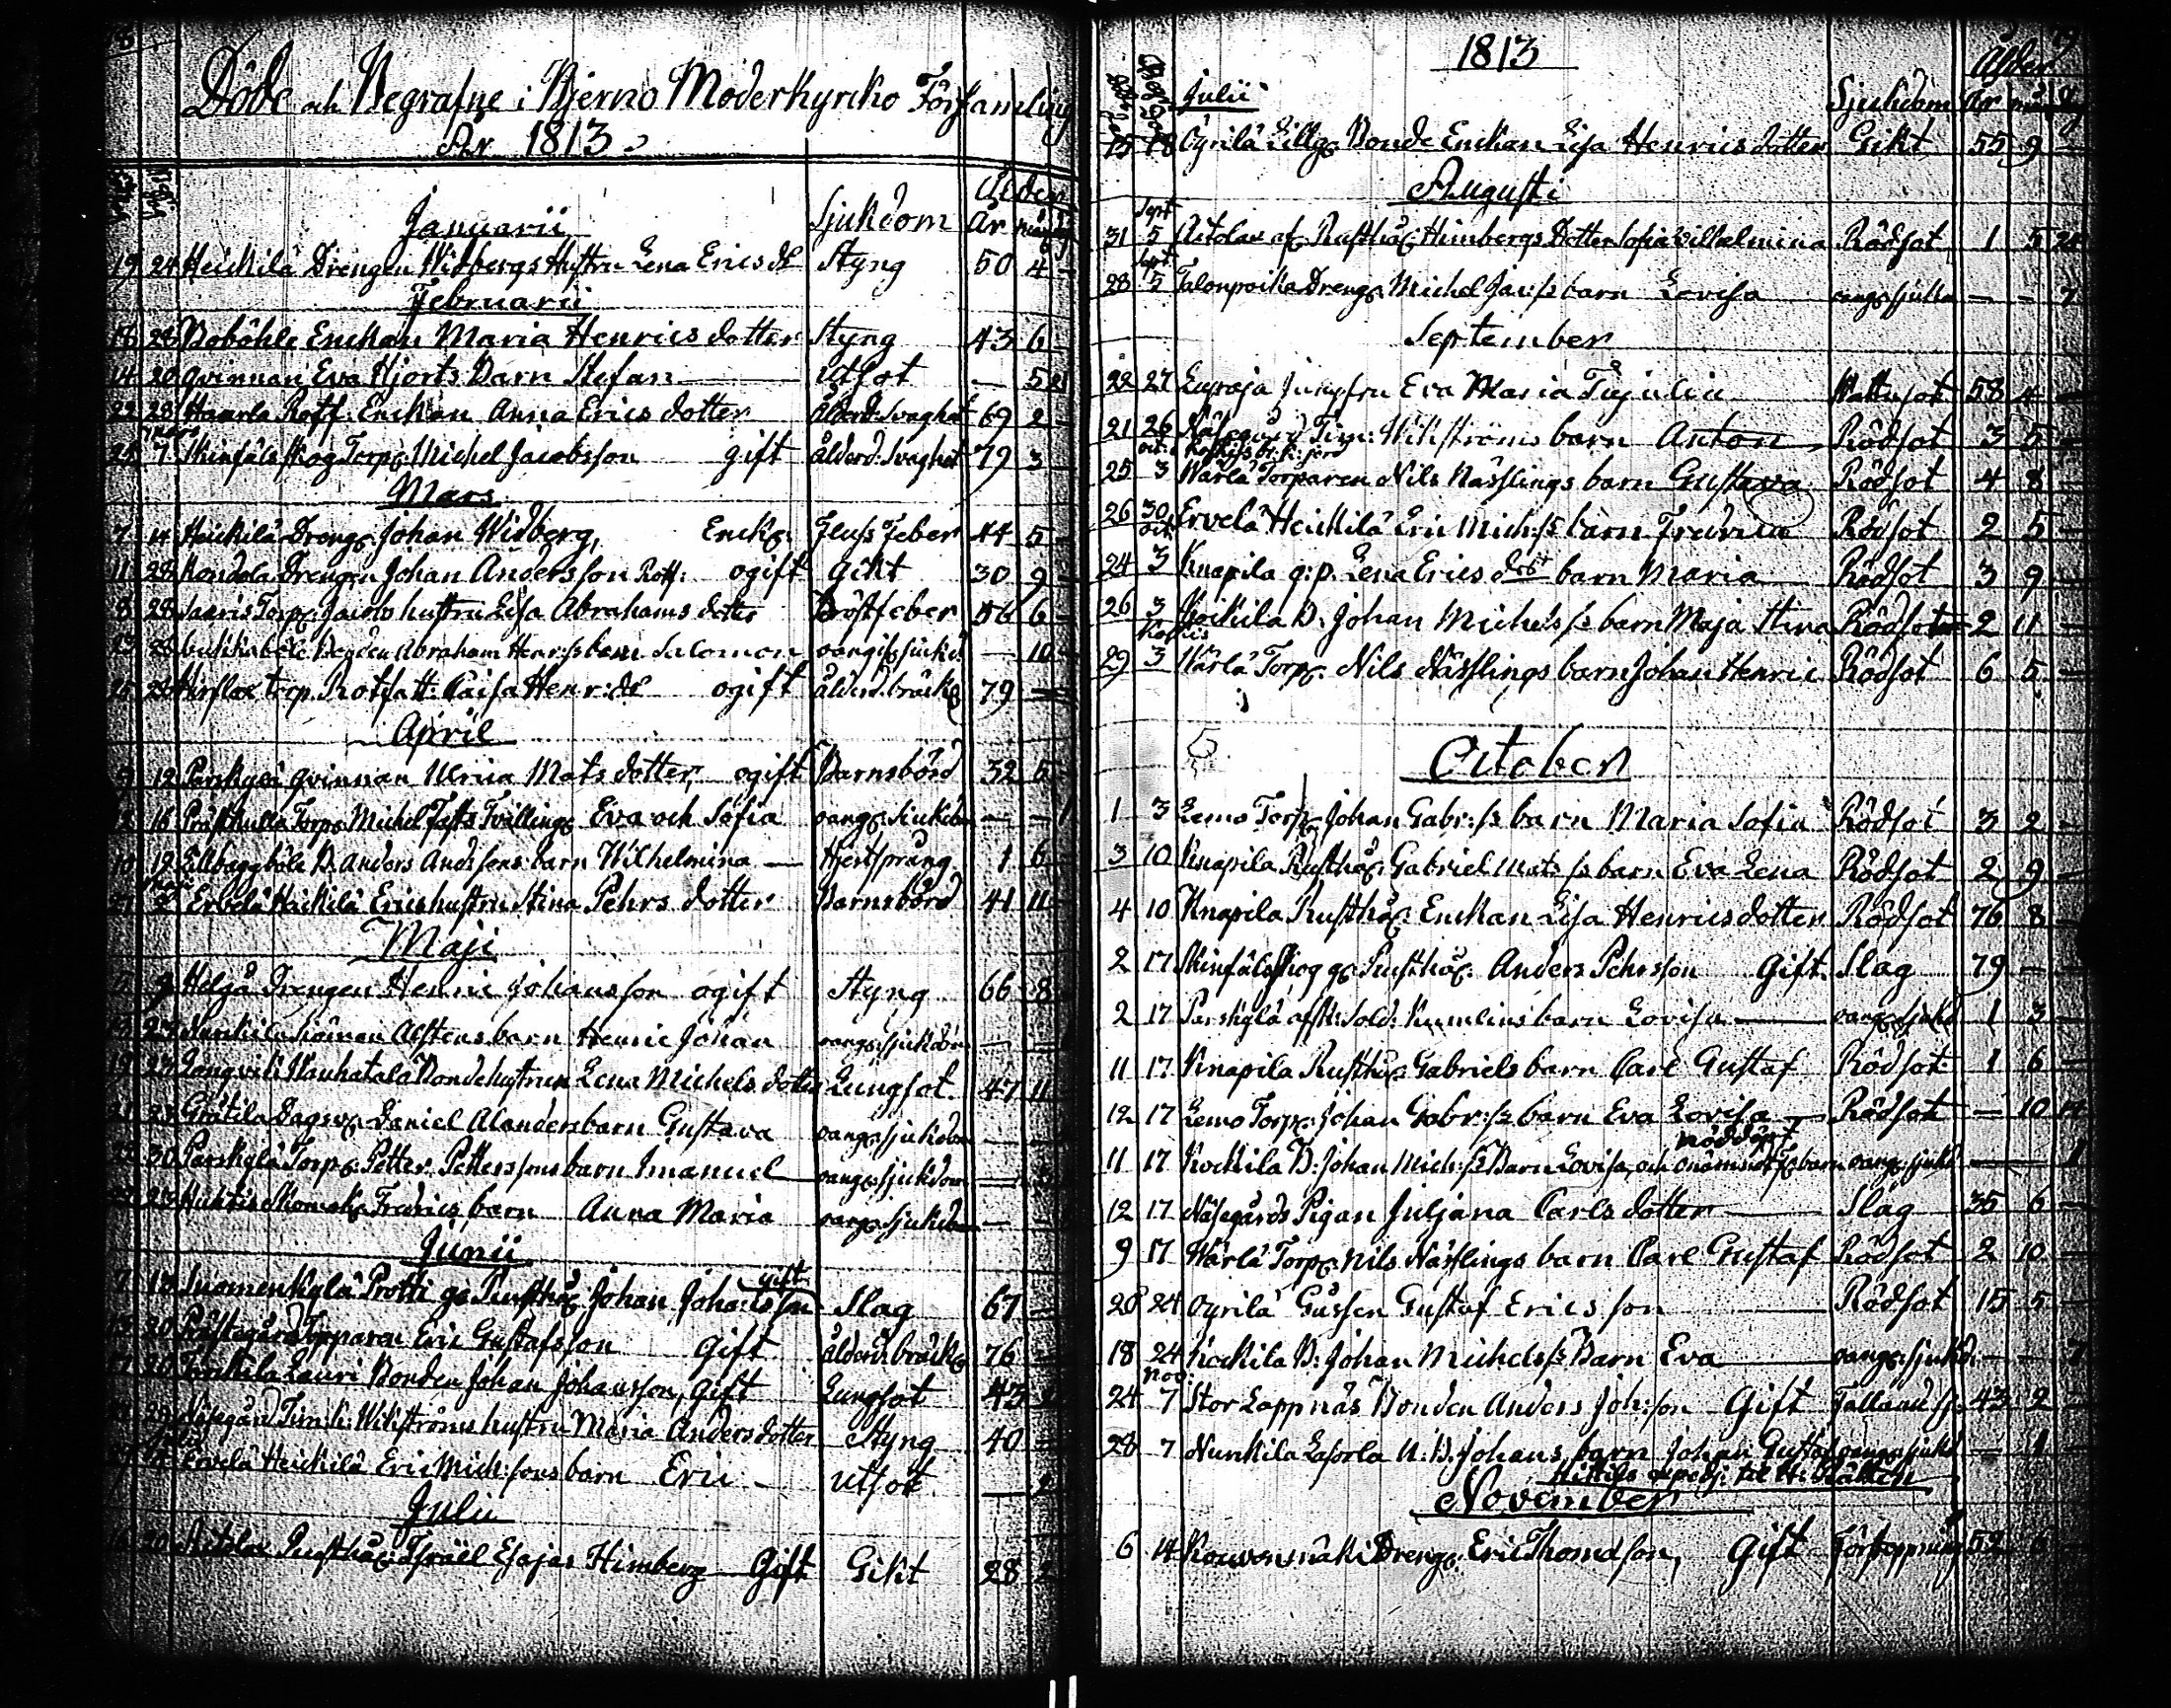 Döde och Begrafne i Bjerno Moderkyrko Församling
År 1813.
Ålder
Januarii Sjukdom År
19 24 Heickilä Drengen Widbergs Hustru Lena Erics dr Styng 50 4 -
Februarii
18 28 Boböhle Enckan Maria Henrics dotter Styng 43 6
14 20 Qvinnan Eva Hjorts Barn Stefan — Utsot — 5 21
22 28 Haarla Rotf. Enckan Anna Erics dotter Ålderd: Svaghet 69 2 -
Mars
7 Skinfäls Skog Torp: Michel Jacobsson gift Ålderd: Svaghet 79 3 -
Mars
7 14 Heickilä Dreng: Johan Widberg, Enck: Fluss Feber 44 5 -
11 28 Kondola Drengen Johan Andersson Rotf: ogift Gikt 30 9 -
8 28 Saaris Torp: Jacobs hustru Lisa Abrahams dotter Bröstfeber 56 6 -
Abraham Henr:ss barn Salomon oangif: sjukd: — 10 -
25 28 torp. Rotfatt: Caisa Henr: dr ogift ålderd. bräck: 79 —
April
9 12 Parskylä qvinnan Ulrica Mats dotter, ogift Barnsbörd 32 5 -
12 16 Prästkulla Torp: Michel Tvilling: Eva och Sofia oang: siuckdm — — 1
10 19 Lillbaggböle B. Anders Andssons barn Wilhelmina — Hjertsprång 1 6 -
Maji
2 Ervelä Heickilä Erics hustru Stina Pehrs dotter Barnsbörd 41 11 -
Maji
9 Helgå Drengen Henric Johansson ogift Styng 66 8
23 Alstens barn Henric Johan oang: sjukdom — —
19 23 Långvik Wauhatala Bondehustrun Lena Michels dotter Lungsot. 47 11
21 23 Dagsv: Daniel Alanders barn Gustava oang: sjukdom — —
30 Parskylä Torp: Petter Petterssons barn Imanuel oang: sjukdom —
23 Fredrics barn Anna Maria oang: sjukdom — —
Junii
gift
7 13 Suomenkylä Protti g: Rusthål: Johan Johansson Slag 67 —
20 Prästegård Torparen Eric Gustafsson Gift ålderd. bräck: 76 —
20 Lauri Bonden Johan Johansson, gift Lungsot 43
Näsegård Tim:k: Wikströms hustru Maria Anders dotter Styng 40 —
Julii
Ervelä Heickilä Eric Mich:sons barn Eric — Utsot — 2
Julii
20 Aitolax Rusthål: Israel Esajas Himberg Gift Gikt 28 2
1813 Ålder
Julii Sjukdom År
15 18 Öyrilä Lillg: Bonde Enckan Lisa Henrics dotter Gikt 55 9 —
Augusti
Sept
31 5 Aitolax af: Rusthål: Himbergs Dotter Sofia Wilhelmina Rödsot 1 5 24
Sept
28 5 Talonpoika Dreng: Michel Jac:ss barn Lovisa oang: sjukd — - 7
September
22 27 Jungfru Eva Maria Wattusot 58 4 —
21 26 Näsegård Tim: Wikströms barn Anton Rödsot 3 5 —
oct:
25 3 Wärlä Torparen Nils Nässlings barn Gustava Rödsot 4 8 —
26 30 Ervelä Heickilä Eric Mich:ss barn Fredrica Rödsot 2 5 —
oct.
24 3 Knapila q:p. Lena Erics dotr barn Maria Rödsot 3 9 —
26 3 Kockila B. Johan Michels ss barn Maja Stina Rödsot 2 11 —
Koskis
29 3 Wärlä Torp: Nils Nässlings barn Johan Henric Rödsot 6 5 —
October
1 3 Lemo Torp: Johan Gabr:ss barn Maria Sofia Rödsot 3 2 —
3 10 Knapila Rusthål: Gabriel Mats ss barn Eva Lena Rödsot 2 9 —
4 10 Knapila Rusthål: Enckan Lisa Henrics dotter Rödsot 76 8 —
2 17 Skinfäls Skog g: Rusthål: Anders Pehrsson Gift. Slag 79 — —
2 17 Parskylä afsk: Sold: Kumlins barn Lovisa — oang: sjukd 1 3 —
11 17 Knapila Rusthål: Gabriels barn Carl Gustaf Rödsot 1 6 —
12 17 Lemo Torp: Johan Gabr:ss barn Eva Lovisa — Rödsot — 10 14
nöddöpt
11 17 Kockila B: Johan Mich:ss Barn Lovisa, och onämndt F: barn oang: sjukd — — 1
12 17 Näsegårds Pigan Juljana Carls dotter — Slag 35 6 —
9 17 Wärlä Torp: Nils Nässlings barn Carl Gustaf Rödsot 2 10 —
20 24 Öyrilä Gåssen Gustaf Erics son — Rödsot 15 5 —
18 24 Kockila B: Johan Michels ss Barn Eva — oang: sjukd: — — 7
Nov:
24 7 Stor Lappnäs Bonden Anders Joh:son Gift Fallandsj: 43 2 —
28 7 Nunkila Laforla U. B. Johans barn Johan Gustaf oang: sjukd — 4 —
November
6 14 Kouvonmäki Dreng: Eric Thomasson, Gift Förstoppning 52 6 —